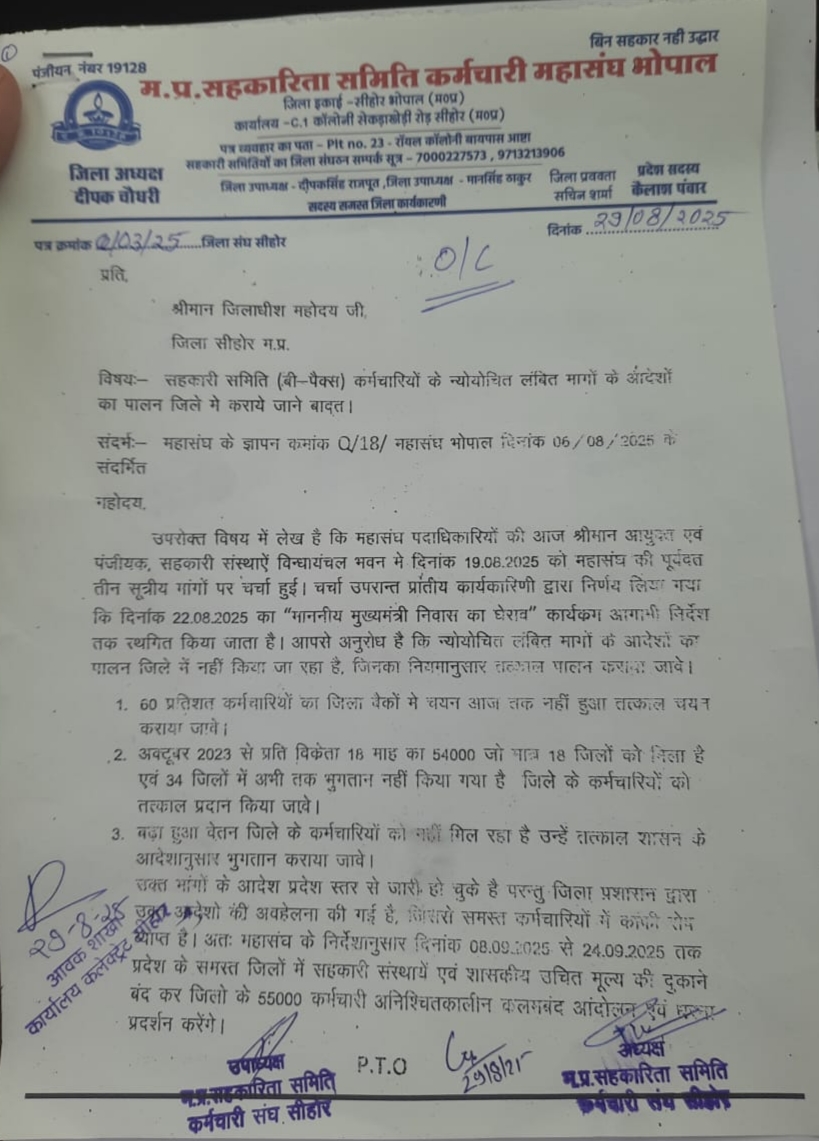 बिन सहकार नही उद्धार
पंजीयन नंबर 19128
म.प्र.सहकारिता समिति कर्मचारी महासंघ भोपाल
जिला इकाई -सीहोर भोपाल (म०प्र)
कार्यालय -C.1 कॉलोनी सेकड़ाखेड़ी रोड़ सीहोर (म०प्र)
पत्र व्यवहार का पता - Plt no. 23 - रॉयल कॉलोनी बायपास आष्टा
सहकारी समितियों का जिला संघठन सम्पर्क सूत्र - 7000227573 , 9713213906
जिला अध्यक्ष
दीपक चौधरी
जिला उपाध्यक्ष - दीपकसिंह राजपूत ,जिला उपाध्यक्ष - मानसिंह ठाकुर
सदस्य समस्त जिला कार्यकारणी
जिला प्रवक्ता
सचिन शर्मा
प्रदेश सदस्य
कैलाश पंवार
पत्र क्रमांक Q/03/25 जिला संघ सीहोर
दिनांक 29/08/2025
O/C
प्रति,
श्रीमान जिलाधीश महोदय जी,
जिला सीहोर म.प्र.
विषयः– सहकारी समिति (बी–पैक्स) कर्मचारियों के न्योयोचित लंबित मागों के आदेशों
का पालन जिले मे कराये जाने बाबत।
संदर्भः– महासंघ के ज्ञापन कमांक Q/18/ महासंघ भोपाल दिनांक 06/08/2025 के
संदर्भित
महोदय,
उपरोक्त विषय में लेख है कि महासंघ पदाधिकारियों की आज श्रीमान आयुक्त एवं
पंजीयक, सहकारी संस्थाऐं विन्धायंचल भवन मे दिनांक 19.08.2025 को महासंघ की पूर्ववत
तीन सूत्रीय मांगों पर चर्चा हुई। चर्चा उपरान्त प्रांतीय कार्यकारिणी द्वारा निर्णय लिया गया
कि दिनांक 22.08.2025 का “माननीय मुख्यमंत्री निवास का घेराव” कार्यकम आगामी निर्देश
तक स्थगित किया जाता है। आपसे अनुरोध है कि न्योयोचित लंबित मागों के आदेशों का
पालन जिले में नहीं किया जा रहा है, जिनका नियमानुसार तत्काल पालन कराया जावे।
1. 60 प्रतिशत कर्मचारियों का जिला बैकों मे चयन आज तक नहीं हुआ तत्काल चयन
कराया जावे।
2. अक्टूबर 2023 से प्रति विकेता 18 माह का 54000 जो मात्र 18 जिलों को मिला है
एवं 34 जिलों में अभी तक भुगतान नहीं किया गया है जिले के कर्मचारियों को
तत्काल प्रदान किया जावे।
3. बढ़ा हुआ वेतन जिले के कर्मचारियों को नहीं मिल रहा है उन्हें तत्काल शासन के
आदेशानुसार भुगतान कराया जावे।
उक्त मांगों के आदेश प्रदेश स्तर से जारी हो चुके है परन्तु जिला प्रशासन द्वारा
उक्त आदेशो की अवहेलना की गई है, जिससे समस्त कर्मचारियों में काफी रोष
व्याप्त है। अतः महासंघ के निर्देशानुसार दिनांक 08.09.2025 से 24.09.2025 तक
प्रदेश के समस्त जिलों में सहकारी संस्थायें एवं शासकीय उचित मूल्य की दुकाने
बंद कर जिलो के 55000 कर्मचारी अनिश्चितकालीन कलमबंद आंदोलन एवं धरना
प्रदर्शन करेंगे।
29-8-25
आवक शाखा
कार्यालय कलेक्ट्रेट सीहोर
उपाध्यक्ष
म.प्र.सहकारिता समिति
कर्मचारी संघ सीहोर
P.T.O
29/8/25
अध्यक्ष
म.प्र.सहकारिता समिति
कर्मचारी संघ सीहोर